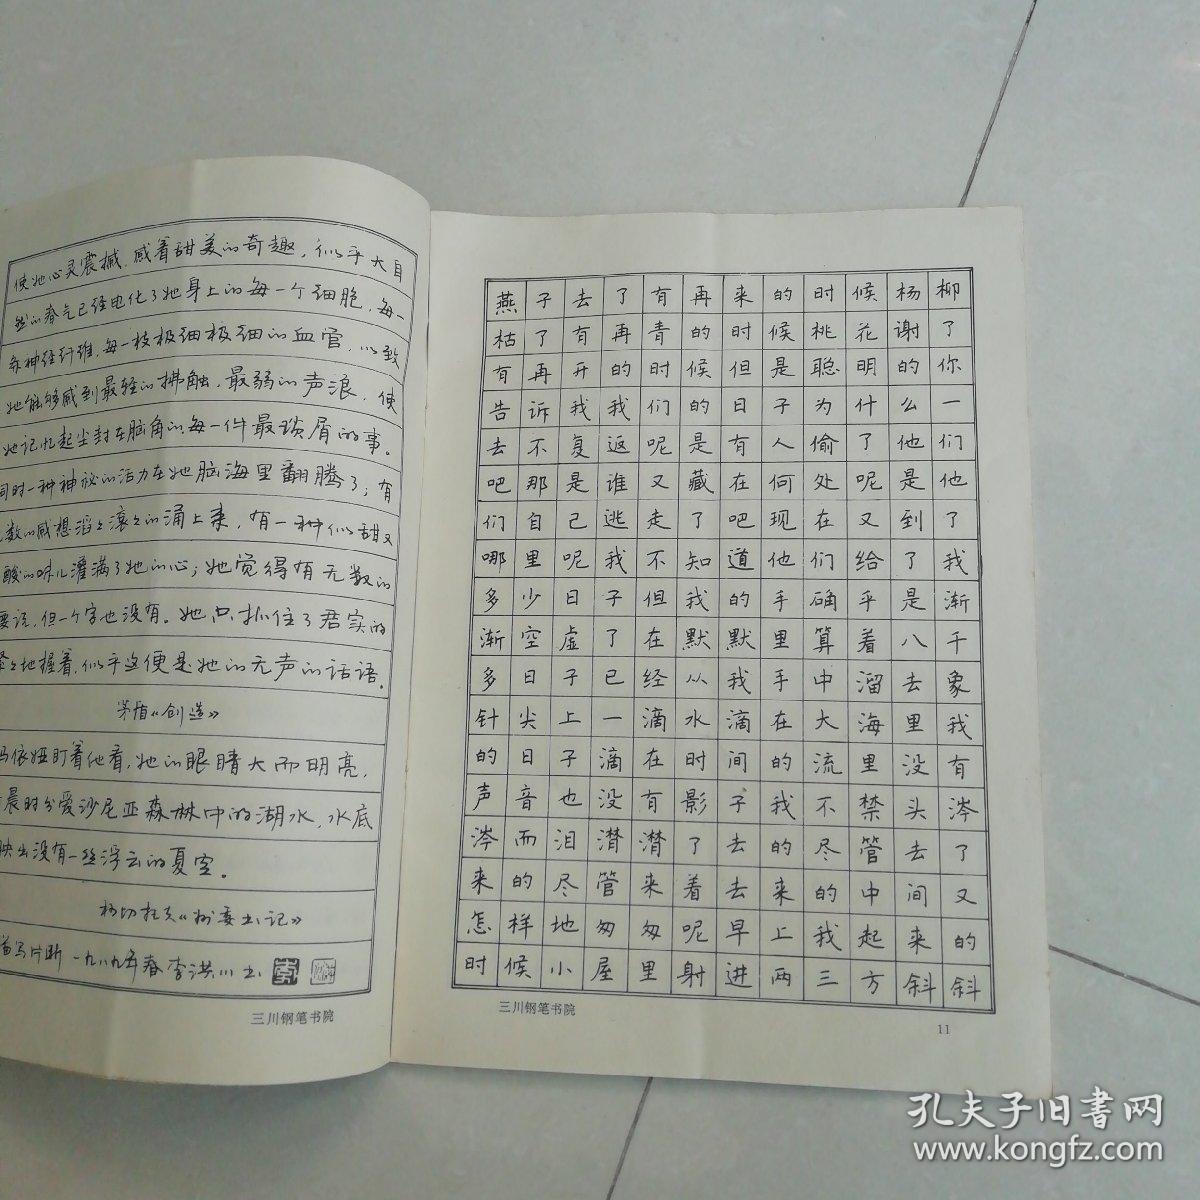 使她心灵震撼,感着甜美的奇趣,似乎大自
然的春气已经电化了她身上的每一个细胞,每一
条神经纤维,每一枝极细极细的血管,以致
她能够感到最轻的拂触,最弱的声浪,使
她记忆起尘封在脑角的每一件最琐屑的事。
同时一种神秘的活力在她脑海里翻腾了;有
数的感想滔滔滚滚的涌上来,有一种似甜又
酸的味儿灌满了她的心;她觉得有无数的
要说,但一个字也没有。她只抓住了君实的
紧紧地握着,似乎这便是她的无声的话语。
茅盾《创造》
玛依娅盯着他看,她的眼睛大而明亮,
晨时分爱沙尼亚森林中的湖水,水底
映出没有一丝浮云的夏空。
描写片断 一九八九年春 李洪川书
三川钢笔书院
燕子去了有再来的时候杨柳
枯了有再青的时候桃花谢了
有再开的时候但是聪明的你
告诉我我们的日子为什么一
去不复返呢是有人偷了他们
吧那是谁又藏在何处呢是他
们自己逃走了吧现在又到了
哪里呢我不知道他们给了我
多少日子但我的手确乎是渐
渐空虚了在默默里算着八千
多日子已经从我手中溜去象
针尖上一滴水滴在大海里我
的日子滴在时间的流里没有
声音也没有影子我不禁头涔
涔而泪潸潸了去的尽管去了
来的尽管来着去来的中间又
怎样地匆匆呢早上我起来的
时候小屋里射进两三方斜斜
三川钢笔书院
11
孔夫子旧書网
www.kongfz.com